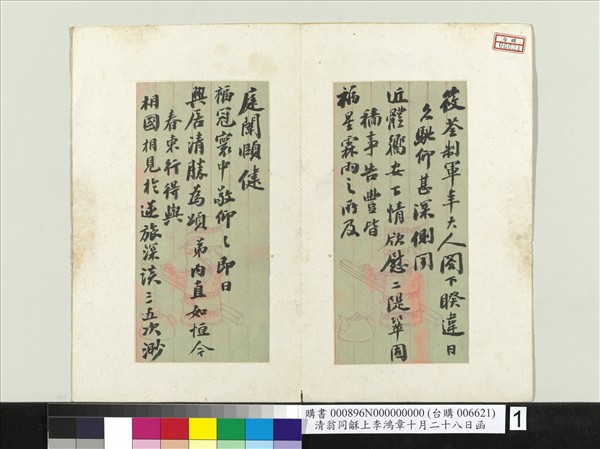 筱荃制軍年大人閣下睽違日
久馳仰甚深側聞
近體衛安下情欣慰二隄鞏固
穡事告豐皆
福星霖雨之所及
庭闈頤健
福冠寰中敬仰之即日
興居清勝為頌弟內直如恒今
春東行得與
相國相見於逆旅深談三五次渺
台購
006621
購書 000896N000000000 (台購 006621)
清翁同龢上李鴻章十月二十八日函
1